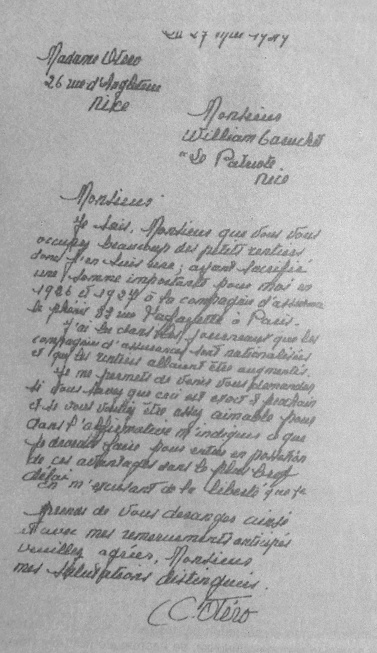 27 1949
Madame Otero
26 rue d'Angleterre
Nice
Monsieur
William Caruchet
"Le Patriote
Nice
Monsieur
Je sais, Monsieur que vous vous
occupez beaucoup des petits rentiers
dont j'en suis une, ayant sacrifié
une somme importante pour moi en
1926 et 1927 à la compagnie d'assurance
le phénix 33 rue Lafayette à Paris.
J'ai lu dans les journeaux que les
compagnie d'assurances sont nationalisées
et que les rentiers allaient être augmentés.
Je me permets de venir vous demander
si vous savez que ceci est exact & prochain
et si vous voulez être assez aimable pour
dans l'affirmative m'indiquer ce que
je devrais faire pour entrer en possession
de ces avantages dans le plus bref
délai
En m'excusant de la liberté que je
prends de vous deranger ainsi
et avec mes remerciements anticipés
veuillez agréer, Monsieur
mes salutations distinguées.
C Otéro